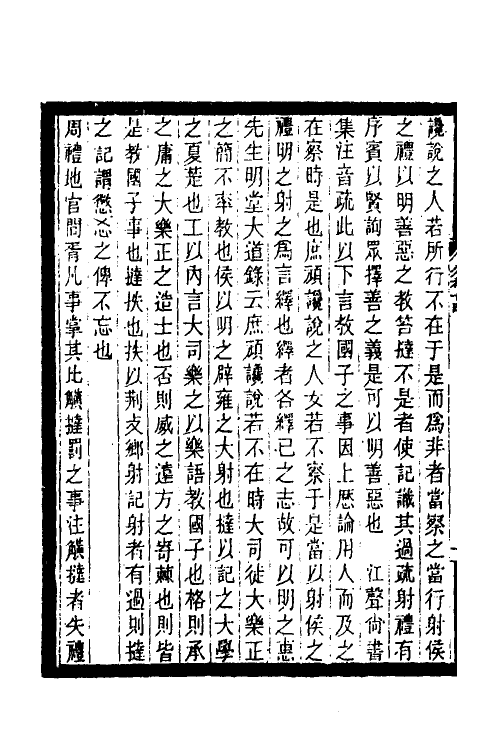 讒說之人若所行不在于是而爲非者當察之當行射侯
之禮以明善惡之教笞撻不是者使記識其過疏射禮有
序賓以賢詢眾擇善之義是可以明善惡也　江聲尙書
集注音疏此以下言敎國子之事因上歷論用人而及之
在察時是也庶頑讒說之人女若不察于是當以射侯之
禮明之射之爲言繹也繹者各繹己之志故可以明之惠
先生明堂大道錄云庶頑讒說若不在時大司徒大樂正
之簡不率敎也侯以明之辟雍之大射也撻以記之大學
之夏楚也工以內言大司樂之以樂語教國子也格則承
之庸之大樂正之造士也否則威之遠方之寄棘也則皆
是教國子事也撻抶也抶以荆支鄉射記射者有過則撻
之記謂懲忘之俾不忘也
周禮地官閭胥凡事掌其比觵撻罰之事注觵撻者失禮